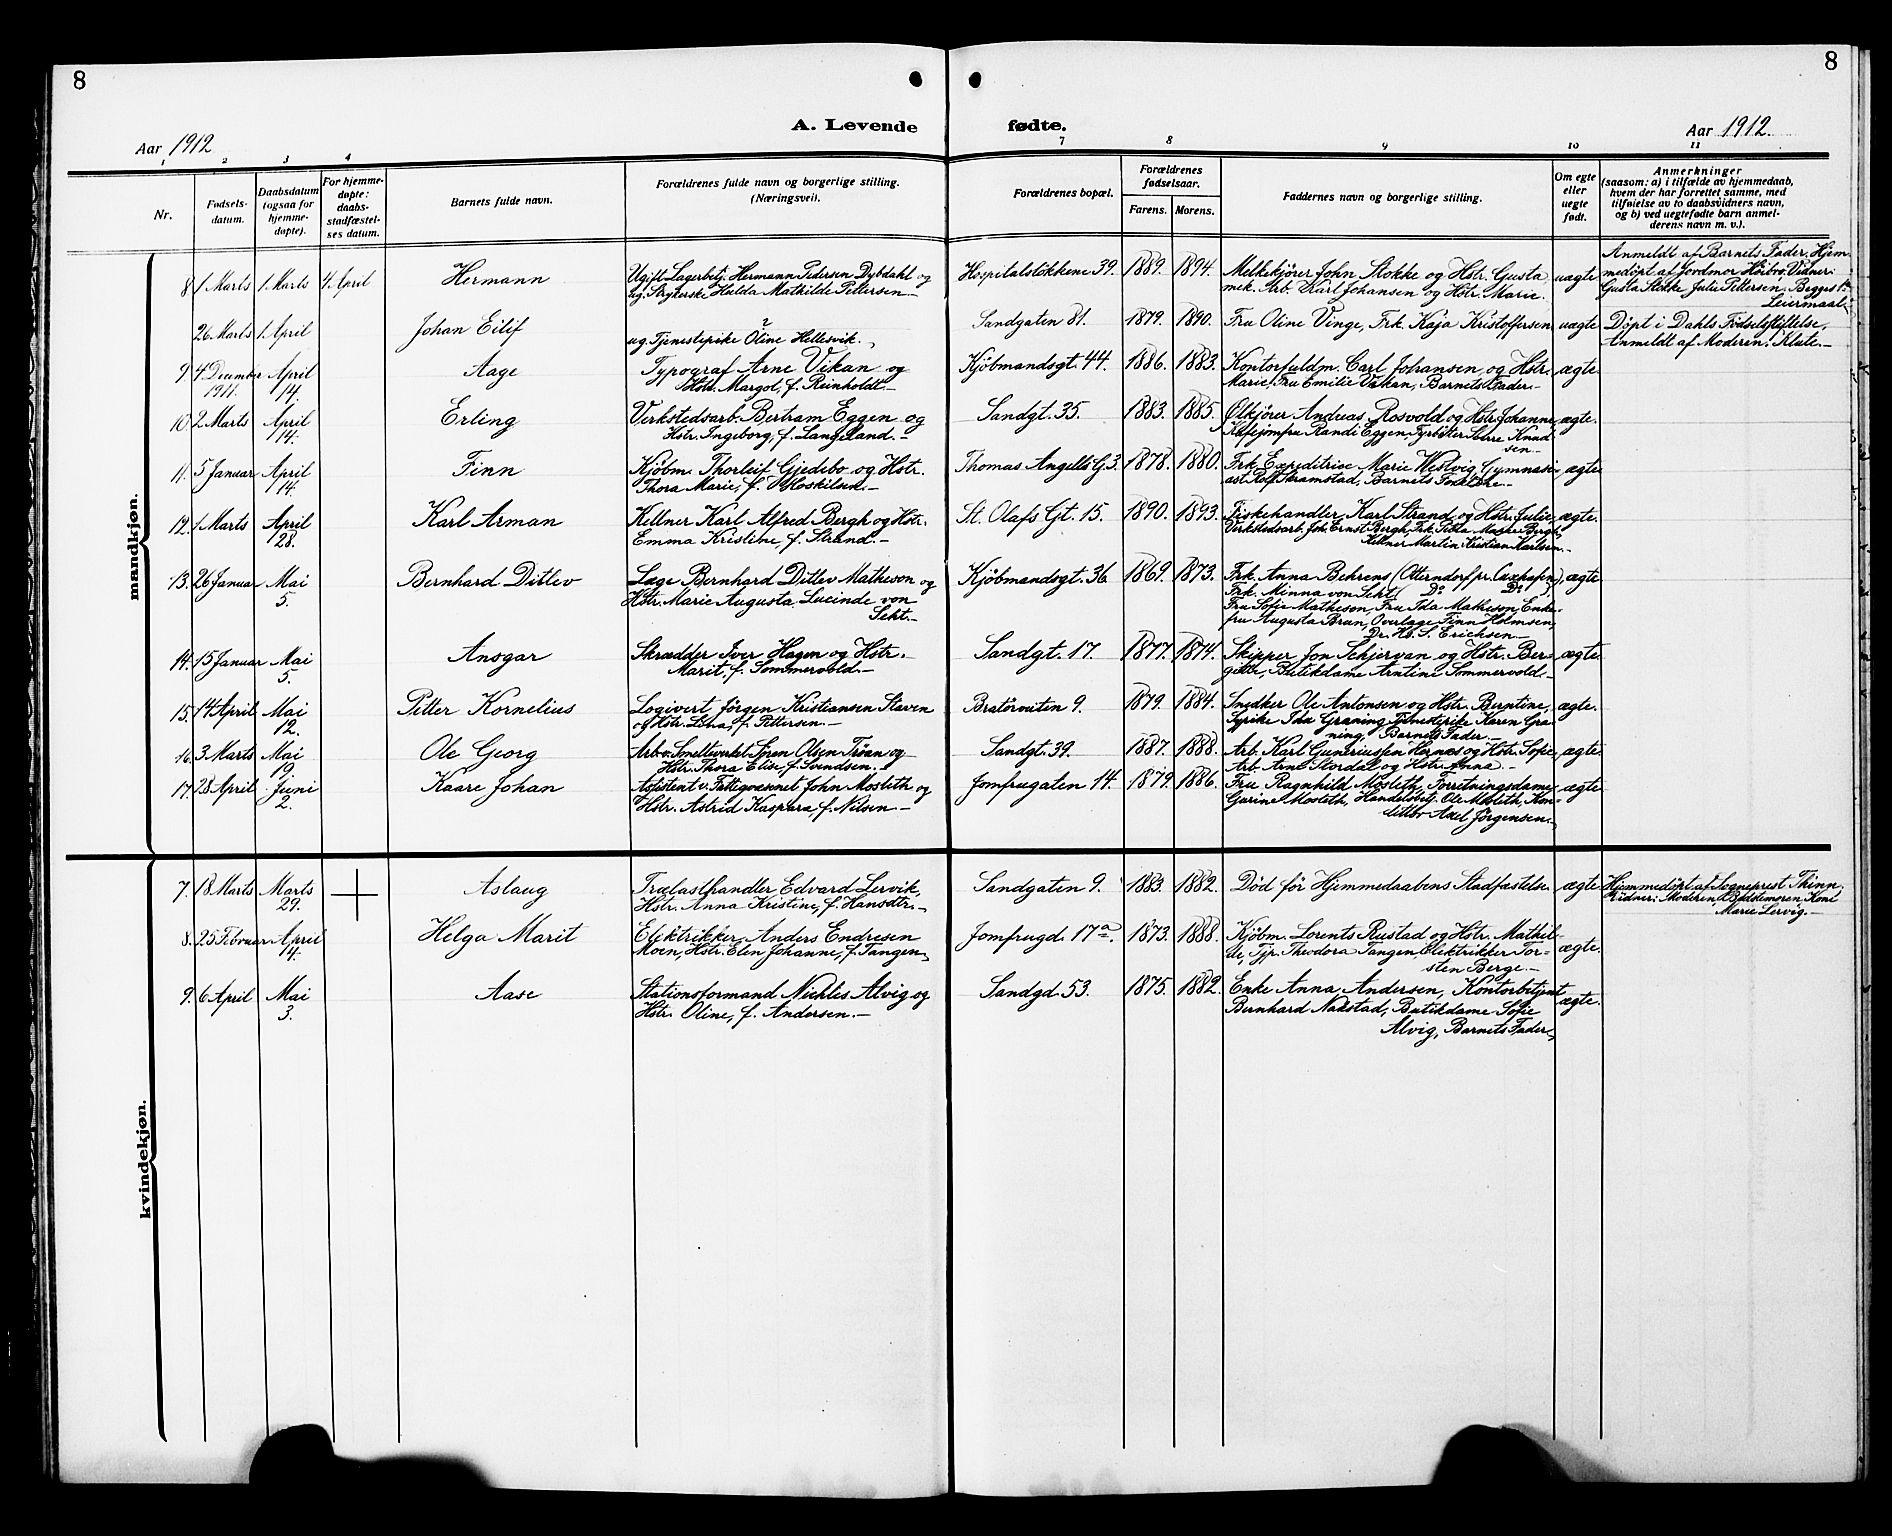 8
8
A. Levende fødte.
Aar 1912
Aar 1912.
1 2 3 4 7 8 9 10 11
Nr.
Fødsels-
datum.
Daabsdatum
(ogsaa for
hjemme-
døpte).
For hjemme-
døpte:
daabs-
stadfæstel-
ses datum.
Barnets fulde navn.
Forældrenes fulde navn og borgerlige stilling.
(Næringsvei).
Forældrenes bopæl.
Forældrenes
fødselsaar.
Farens. Morens.
Faddernes navn og borgerlige stilling.
Om egte
eller
uegte
født.
Anmerkninger
(saasom: a) i tilfælde av hjemmedaab,
hvem der har forrettet samme, med
tilføielse av to daabsvidners navn,
og b) ved uegtefødte barn anmel-
derens navn m. v.).
mandkjøn.
8 1 Marts 1 Marts 4 April Hermann
Ugift Lagerbetj. Hermann Pedersen Dybdahl og
ug. Strykerske Hulda Mathilde Pettersen
Hospitalsløkkene 39. 1889. 1894.
Melkekjører John Stokke og Hstr. Gusta
mek. Arb. Karl Johansen og Hstr. Marie.
uægte
Anmeldt af Barnets Fader. Hjem-
medøpt af Jordmor Hårbro. Vidner:
Gusta Stokke Julie Pettersen. Begges 1ste
Leiermaal.
26 Marts 1 April Johan Eilif
?
ug. Tjenestepike Oline Hellesvik.
Sandgaten 81. 1879. 1890.
Fru Oline Vinge, Frk. Kaja Kristoffersen
uægte
Døpt i Dahls Fødselsstiftelse.
Anmeldt af Moderen. Klute.
9 4 December April Aage
1911. 14.
Typograf Arne Vikan og
Hstr. Margot, f. Reinholdt
Kjøbmandsgt. 44. 1886. 1883.
Kontorfuldm. Carl Johansen og Hstr.
Marie, Fru Emilie Vikan, Barnets Fader.
ægte
10. 2 Marts April Erling
14.
Verkstedsarb. Bertram Eggen og
Hstr. Ingeborg, f. Langeland.
Sandgt. 35. 1883. 1885.
Ølkjører Andreas Rosvold og Hstr. Johanne,
Kafejomfru Randi Eggen, Fyrbøter Sverre Knud
sen
ægte.
11. 5 Januar April Finn
14.
Kjøbm. Thorleif Gjedebo og Hstr.
Thora Marie, f. Roskilsen.
Thomas Angells G. 3. 1878. 1880.
Frk. Expeditrise Marie Westvig, Gymnasi-
ast Rolf Skramstad, Barnets Forældre.
ægte
12. 1 Marts April Karl Arman
28.
Kellner Karl Alfred Bergh og Hstr.
Emma Kristine, f. Strand.
St. Olafs Gt. 15. 1890. 1893.
Fiskehandler Karl Strand og Hstr. Julie,
Verkstedsarb. Joh. Ernst Bergh, Frk. Tekla Margr. Bergh,
Kellner Martin Kristian Karlsen.
ægte.
13. 26 Januar Mai Bernhard Ditlev
5.
Læge Bernhard Ditlev Matheson og
Hstr. Marie Augusta Lucinde von
Seht.
Kjøbmandsgt. 36 1869. 1873.
Frk. Anna Behrens (Otterndorf pr. Cuxhafen),
Frk. Minna von Seht ( Do Do ),
Fru Sofie Matheson, Fru Ida Matheson, Enke-
fru Augusta Brun, Overlæge Finn Holmsen,
Dr. Hs. S. Erichsen
ægte
14. 15 Januar Mai Ansgar
5.
Skrædder Iver Hagen og Hstr.
Marit, f. Sommervold.
Sandgt. 17. 1877. 1874.
Skipper Jon Schjervan og Hstr. Ber-
gitte, Butikdame Arntine Sommervold
ægte.
15. 14 April Mai Petter Kornelius
12.
Logivert Jörgen Kristiansen Staven
og Hstr. Lina, f. Pettersen.
Bratörveiten 9. 1879. 1884.
Snedker Ole Antonsen og Hstr. Berntine,
Sypike Ida Graning, Tjenestepike Karen Gra-
ning, Barnets Fader.
ægte.
16. 3 Marts Mai Ole Georg
19.
Arb. v. Smelteverket Sören Olsen Tröan og
Hstr. Thora Elise, f. Svendsen.
Sandgt. 39. 1887. 1888.
Arb. Karl Gunerinssen Hernæs og Hstr. Sofie,
Arb. Arnt Stordal og Hstr. Anna.
ægte
17. 28 April Juni Kaare Johan
2.
Assistent v. Fattigvæsenet John Mosleth og
Hstr. Astrid Kaspara, f. Nilsen
Jomfrugaten 14. 1879. 1886.
Fru Ragnhild Mosleth, Forretningsdame
Gurine Mosleth, Handelsbetj. Ole Mosleth, Kon-
ditor Axel Jörgensen.
ægte
kvindekjøn.
7. 18 Marts Marts Aslaug
29.
Trælasthandler Edvard Lervik,
Hstr. Anna Kristine, f. Hansdtr.
Sandgaten 9. 1883. 1882.
Død før Hjemmedaabens Stadfæstelse
ægte
Hjemmedøpt af Sogneprest Thinn.
Vidner: Moderen, Bedstemoren Koni
Marie Lervig.
8. 25 Februar April Helga Marit
14.
Elektrikker Anders Endresen
Moen, Hstr. Elen Johanne, f. Tangen,
Jomfrugd. 17a. 1873. 1888.
Kjøbm. Lorents Rustad og Hstr. Mathil-
de, Tjp. Theodora Tangen, Elektrikker Tor-
sten Berge
ægte.
9. 6 April Mai Aase
3.
Stationsformand Nichles Alvig og
Hstr. Oline, f. Andersen.
Sandgd. 53. 1875. 1882.
Enke Anna Andersen, Kontorbetjent
Bernhard Nakstad, Butikdame Sofie
Alvig, Barnets Fader
ægte.